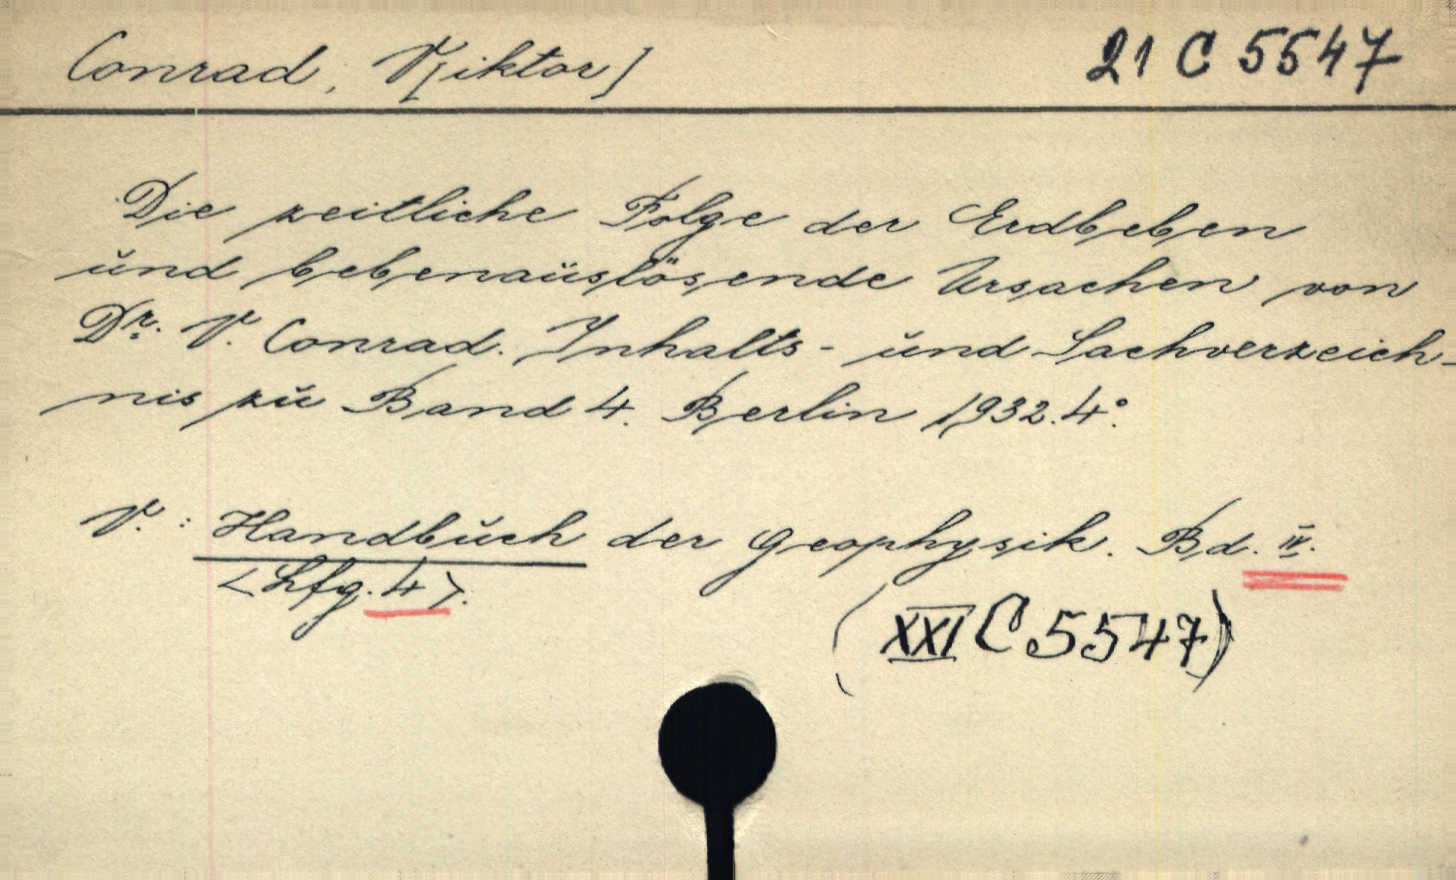 Conrad, V[iktor]
21 C 5547
Die zeitliche Folge der Erdbeben
und bebenauslösende Ursachen von
Dr. V. Conrad. Inhalts- und Sachverzeich-
nis zu Band 4. Berlin 1932. 4°.
V.: Handbuch der Geophysik. Bd. IV.
<Lfg. 4>.
(XXI C 5547)